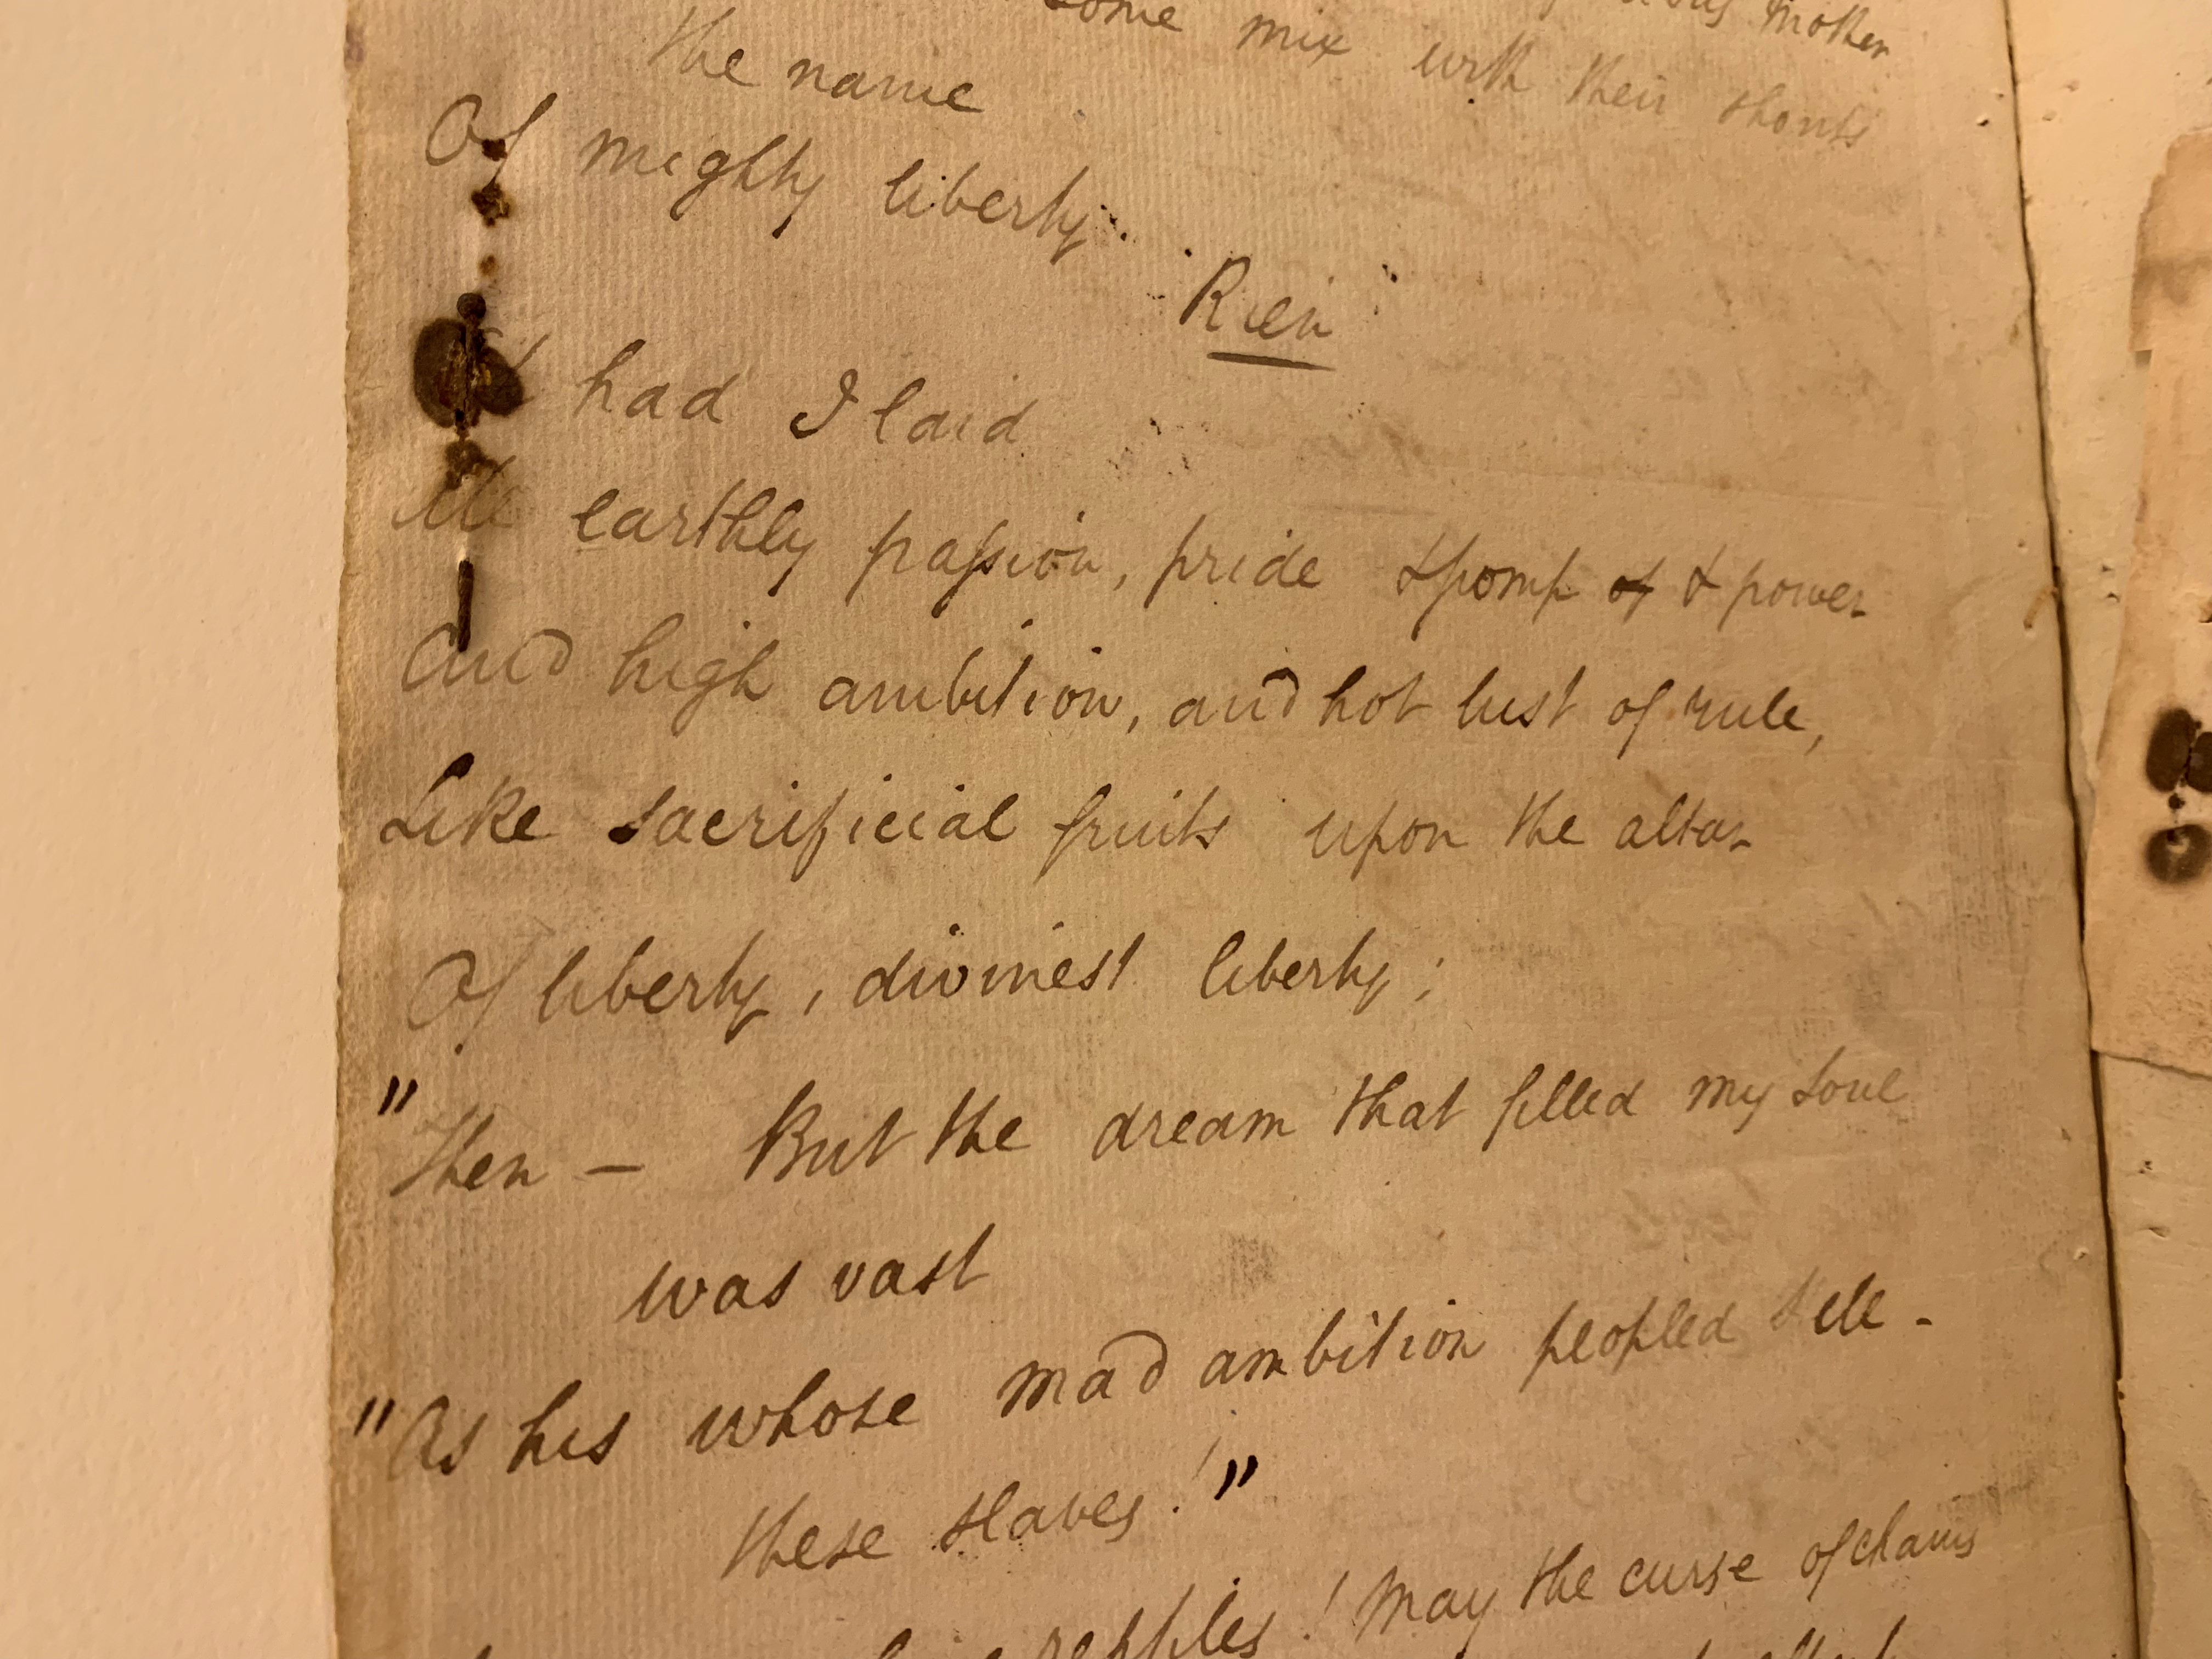 some mix with their shouts mother
the name
Of mighty liberty.
Rien
had I laid
All earthly passion, pride & pomp of & power
And high ambition, and hot lust of rule,
Like sacrificial fruits upon the altar
Of liberty, divinest liberty;
"Then — But the dream that filled my soul
was vast
"As his whose mad ambition peopled
these slaves!"
! may the curse of